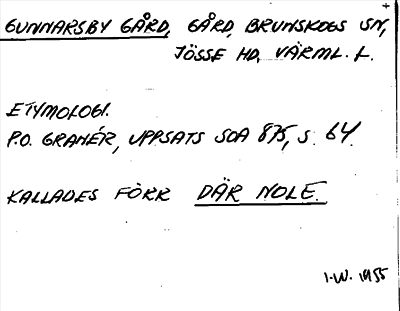 GUNNARSBY GÅRD, GÅRD, BRUNSKOGS SN,
JÖSSE HD, VÄRML. L.
ETYMOLOGI.
P.O. GRANÉR, UPPSATS SOA 875, S. 64.
KALLADES FÖRR DÄR NOLE.
I.W. 1955